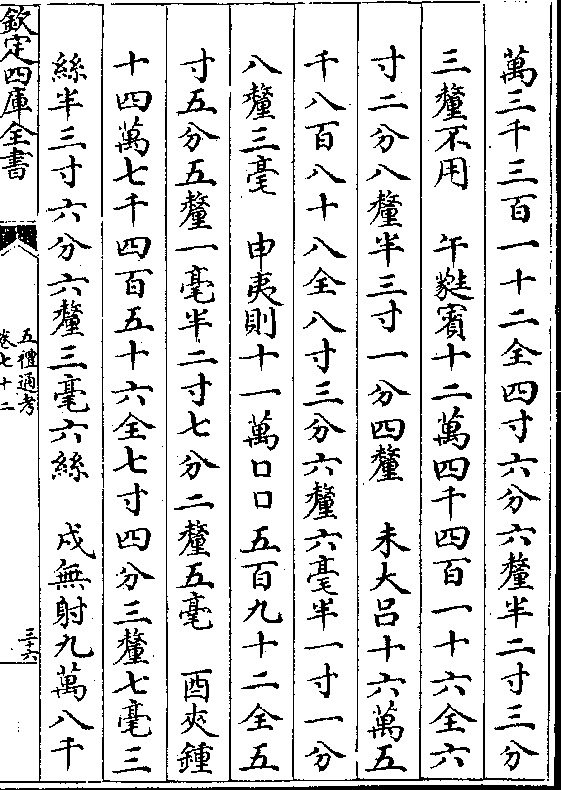 萬三千三百一十二全四寸六分六釐半二寸三分
三釐不用　午蕤賓十二萬四千四百一十六全六
寸二分八釐半三寸一分四釐　未大呂十六萬五
千八百八十八全八寸三分六釐六毫半一寸一分
八釐三毫　申夷則十一萬口口五百九十二全五
寸五分五釐一毫半二寸七分二釐五毫　酉夾鍾
十四萬七千四百五十六全七寸四分三釐七毫三
絲半三寸六分六釐三毫六絲　戌無射九萬八千
欽定四庫全書
五禮通考
卷七十二
三十六